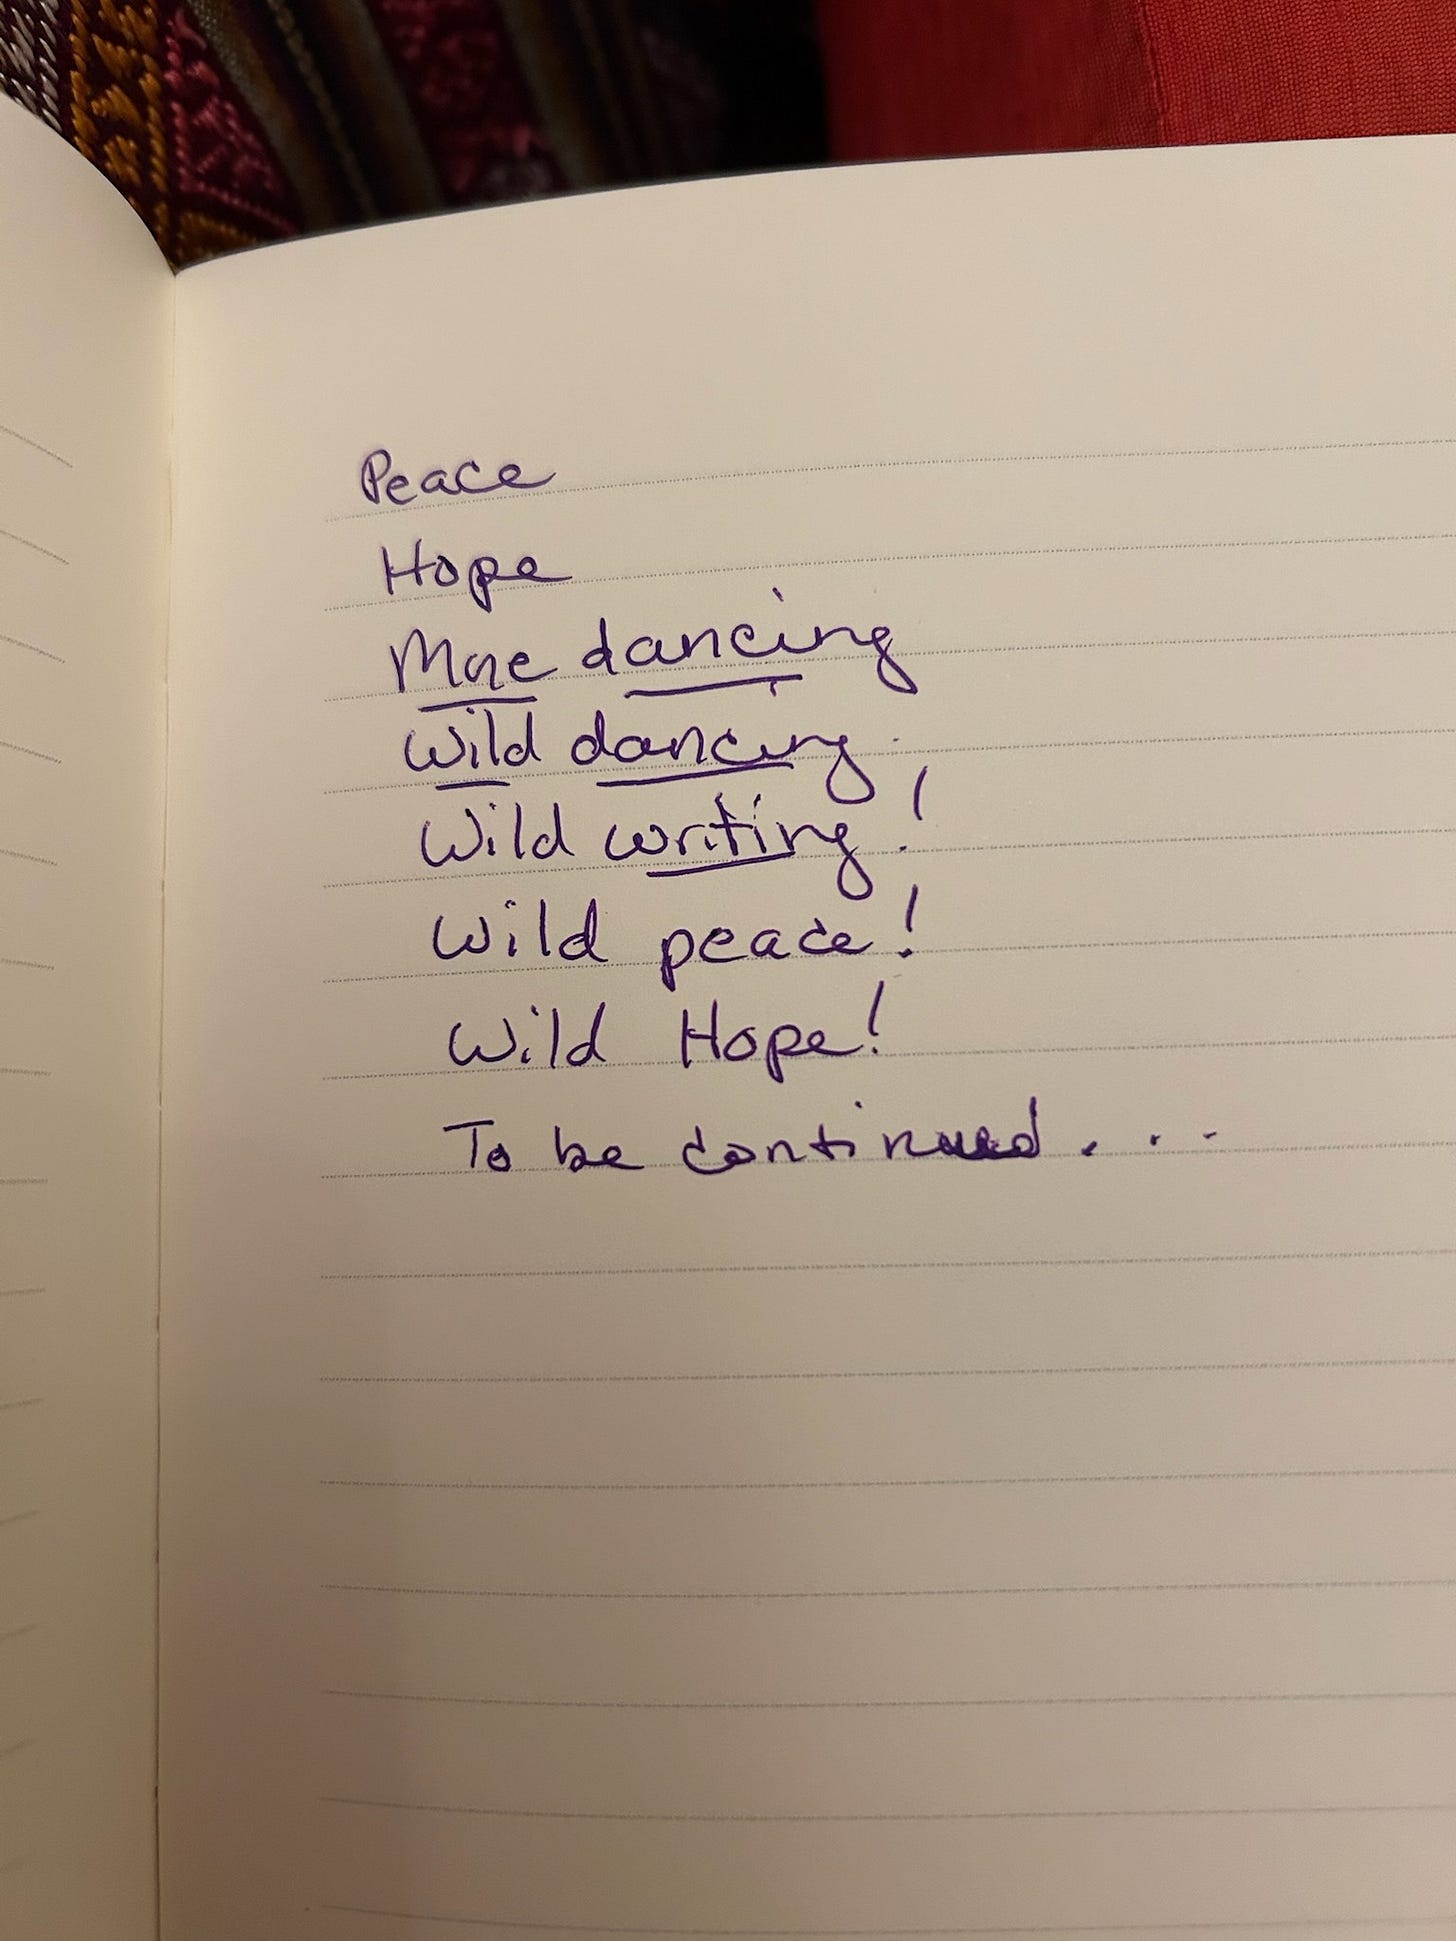 Peace
Hope
More dancing
Wild dancing
Wild writing!
Wild peace!
Wild Hope!
To be continued...